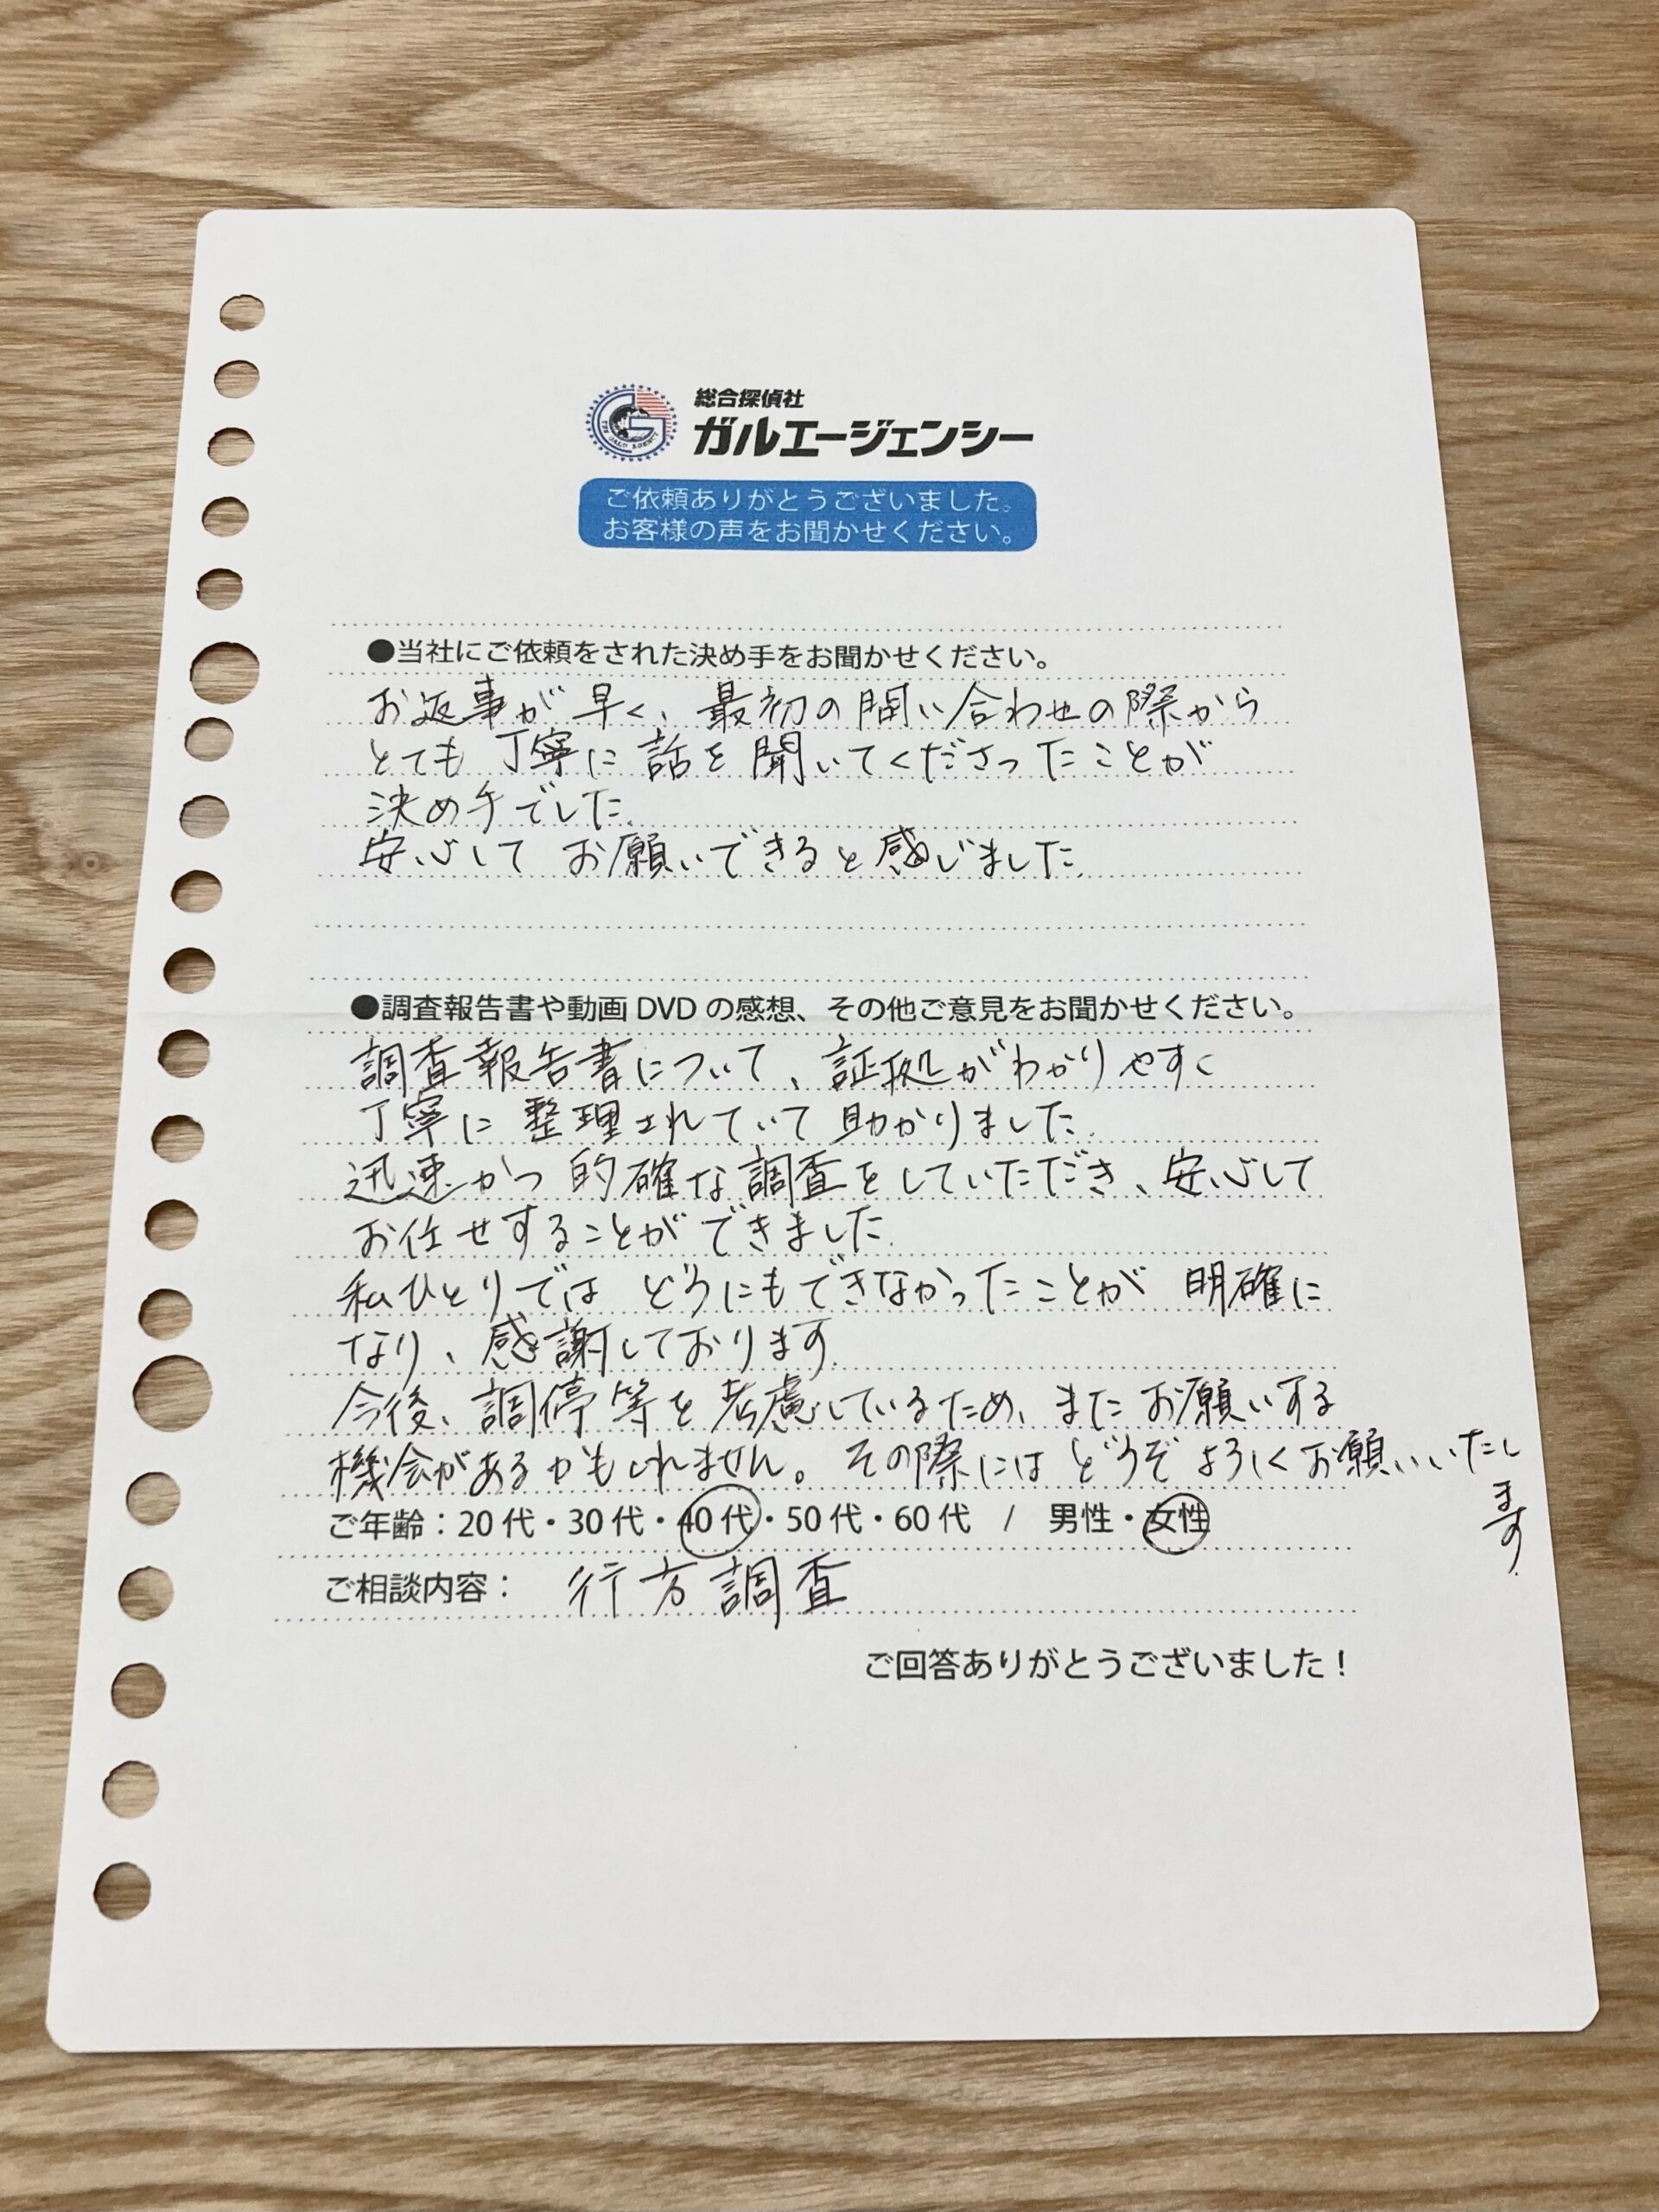 総合探偵社
ガルエージェンシー
ご依頼ありがとうございました。
お客様の声をお聞かせください。
●当社にご依頼をされた決め手をお聞かせください。
お返事が早く、最初の問い合わせの際から
とても丁寧に話を聞いてくださったことが
決め手でした.
安心してお願いできると感じました.
●調査報告書や動画DVDの感想、その他ご意見をお聞かせください。
調査報告書について、証拠がわかりやすく
丁寧に整理されていて助かりました.
迅速かつ的確な調査をしていただき、安心して
お任せすることができました.
私ひとりではどうにもできなかったことが明確に
なり、感謝しております.
今後、調停等を考慮しているため、またお願いする
機会があるかもしれません。その際にはどうぞよろしくお願いいたし
ます.
ご年齢：20代・30代・40代・50代・60代 / 男性・女性
ご相談内容： 行方調査
ご回答ありがとうございました！